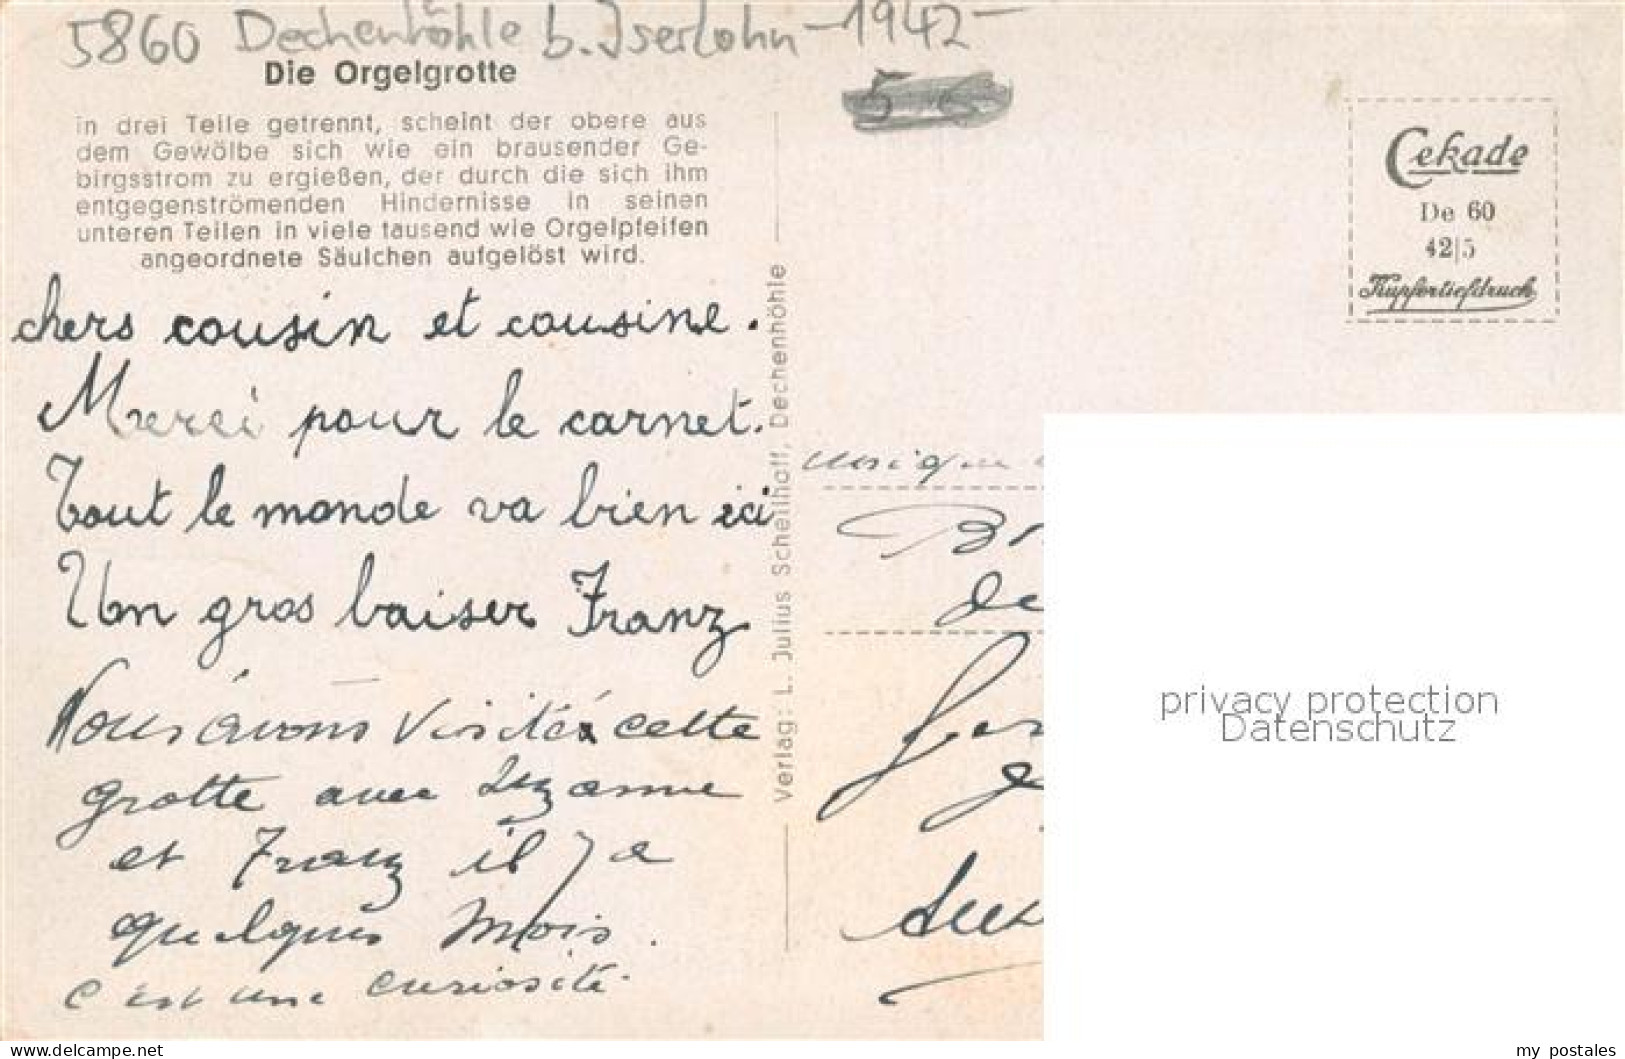 5860 Dechenhöhle b. Iserlohn -1942-
Die Orgelgrotte
in drei Teile getrennt, scheint der obere aus
dem Gewölbe sich wie ein brausender Ge-
birgsstrom zu ergießen, der durch die sich ihm
entgegenströmenden Hindernisse in seinen
unteren Teilen in viele tausend wie Orgelpfeifen
angeordnete Säulchen aufgelöst wird.
chers cousin et cousine.
Merci pour le carnet.
Tout le monde va bien ici
Un gros baiser Franz
Nous avons visité cette
grotte avec Suzanne
et Franz il y a
quelques mois.
c'est une curiosité.
Verlag: L. Julius Schellhoff, Dechenhöhle
Cekade
De 60
42|5
Kupfertiefdruck
de
privacy protection
Datenschutz
www.delcampe.net
my_postales